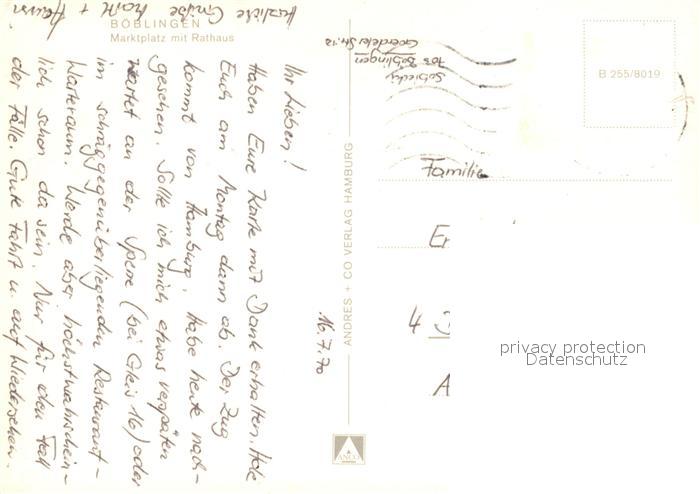 BÖBLINGEN
Marktplatz mit Rathaus
16.7.70
Ihr Lieben!
Haben Eure Karte mit Dank erhalten. Hole
Euch am Montag dann ab. Der Zug
kommt von Hamburg. Habe heute nach-
gesehen. Sollte ich mich etwas verspäten
wartet an der Sperre (bei Gleis 16) oder
im schräggegenüberliegenden Restaurant-
Warteraum. Werde aber höchstwahrschein-
lich schon da sein. Nur für den Fall
der Fälle. Gute Fahrt u. auf Wiedersehen.
Herzliche Grüße
ANDRES + CO VERLAG HAMBURG
ANCO
703 Böblingen
Goerdelerstr. 12
B 255/8019
Familie
Er
4 D
A
privacy protection
Datenschutz